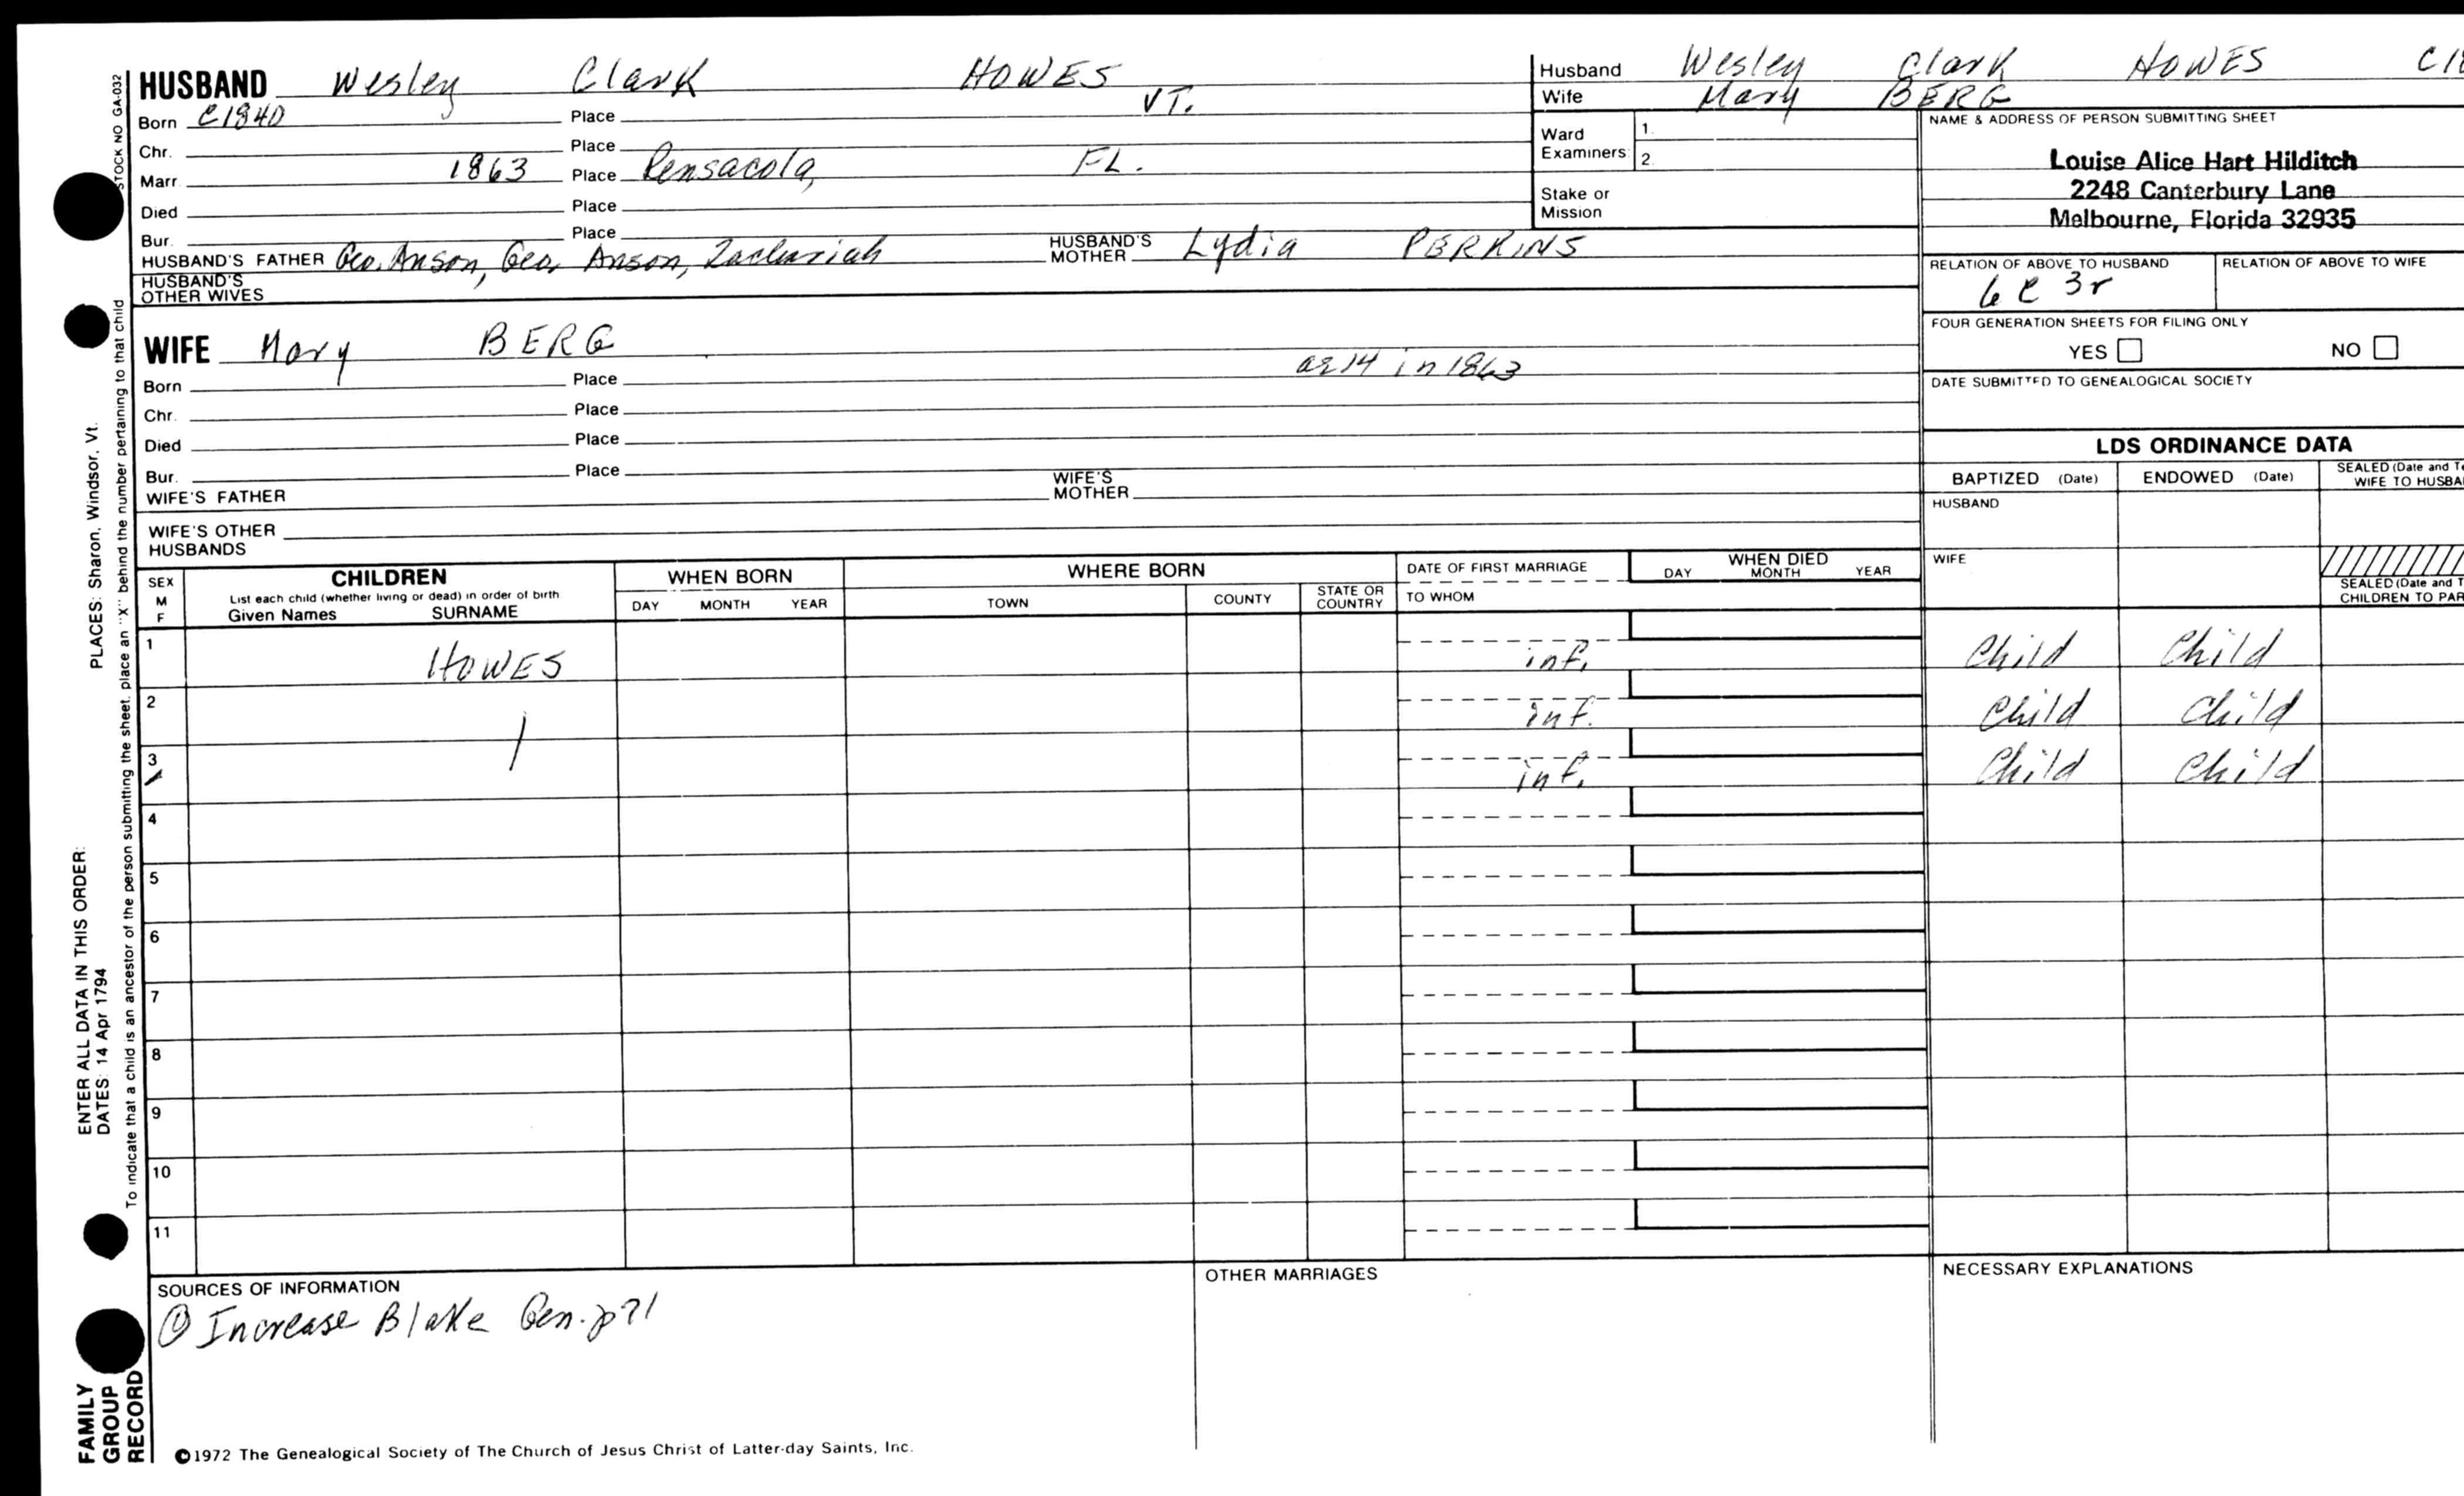 HUSBAND Wesley Clark HOWES
Born C1840 Place VT.
Chr. Place
Marr. 1863 Place Pensacola, FL.
Died Place
Bur. Place
HUSBAND'S FATHER Geo. Anson, Geo. Anson, Zachariah HUSBAND'S MOTHER Lydia PERKINS
HUSBAND'S OTHER WIVES
WIFE Mary BERG
ae 14 in 1863
Born Place
Chr. Place
Died Place
Bur. Place
WIFE'S FATHER WIFE'S MOTHER
WIFE'S OTHER HUSBANDS
Husband Wesley Clark HOWES C18
Wife Mary BERG
Ward Examiners: 1.
2.
Stake or Mission
NAME & ADDRESS OF PERSON SUBMITTING SHEET
Louise Alice Hart Hilditch
2248 Canterbury Lane
Melbourne, Florida 32935
RELATION OF ABOVE TO HUSBAND RELATION OF ABOVE TO WIFE
6 C 3r
FOUR GENERATION SHEETS FOR FILING ONLY
YES NO
DATE SUBMITTED TO GENEALOGICAL SOCIETY
LDS ORDINANCE DATA
BAPTIZED (Date) ENDOWED (Date) SEALED (Date and Te
WIFE TO HUSBA
HUSBAND
WIFE
SEALED (Date and T
CHILDREN TO PAR
SEX M F
CHILDREN
List each child (whether living or dead) in order of birth
Given Names SURNAME
WHEN BORN
DAY MONTH YEAR
WHERE BORN
TOWN COUNTY STATE OR COUNTRY
DATE OF FIRST MARRIAGE
TO WHOM
WHEN DIED
DAY MONTH YEAR
1 HOWES inf. Child Child
2 inf. Child Child
3 inf. Child Child
4
5
6
7
8
9
10
11
SOURCES OF INFORMATION
① Increase Blake Gen. p71
OTHER MARRIAGES
NECESSARY EXPLANATIONS
©1972 The Genealogical Society of The Church of Jesus Christ of Latter-day Saints, Inc.
STOCK NO GA-032
To indicate that a child is an ancestor of the person submitting the sheet, place an "X" behind the number pertaining to that child
ENTER ALL DATA IN THIS ORDER:
PLACES: Sharon, Windsor, Vt.
DATES: 14 Apr 1794
FAMILY GROUP RECORD